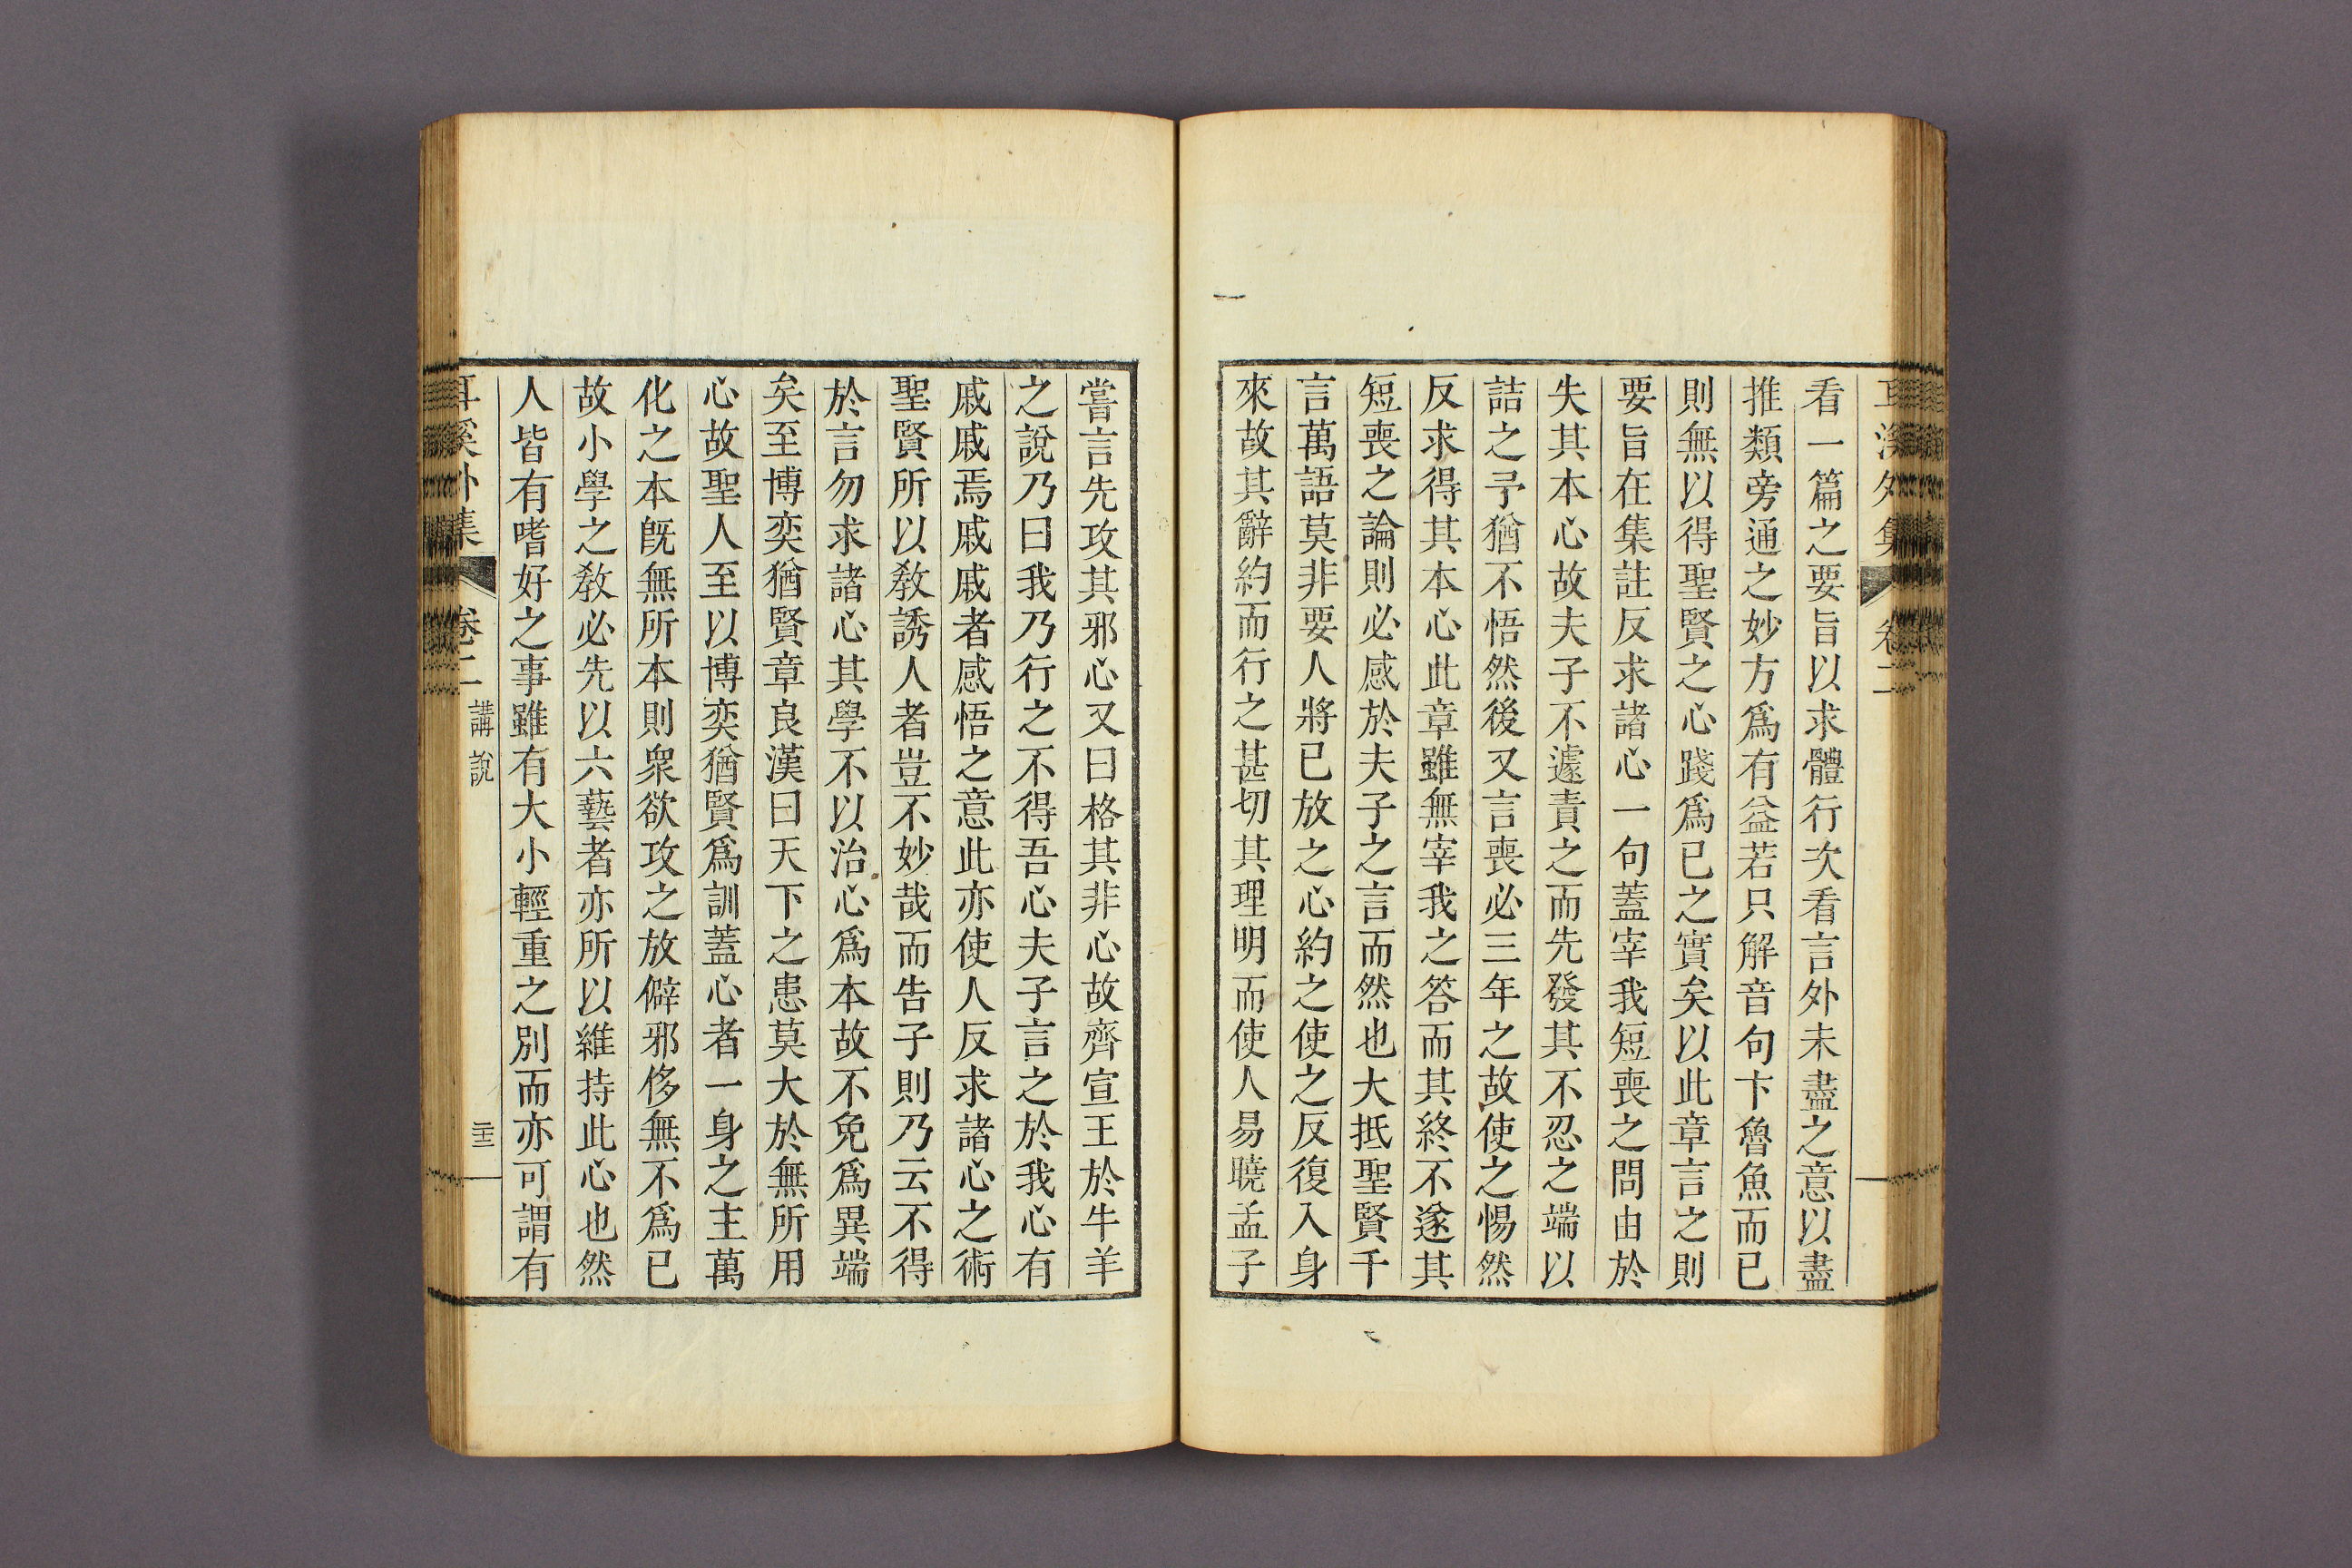 耳溪外集 卷二
看一篇之要旨以求體行次看言外未盡之意以盡
推類旁通之妙方爲有益若只解音句卞魯魚而已
則無以得聖賢之心踐爲已之實矣以此章言之則
要旨在集註反求諸心一句蓋宰我短喪之問由於
失其本心故夫子不遽責之而先發其不忍之端以
詰之予猶不悟然後又言喪必三年之故使之惕然
反求得其本心此章雖無宰我之答而其終不遂其
短喪之論則必感於夫子之言而然也大抵聖賢千
言萬語莫非要人將已放之心約之使之反復入身
來故其辭約而行之甚切其理明而使人易曉孟子
嘗言先攻其邪心又曰格其非心故齊宣王於牛羊
之說乃曰我乃行之不得吾心夫子言之於我心有
戚戚焉戚戚者感悟之意此亦使人反求諸心之術
聖賢所以敎誘人者豈不妙哉而告子則乃云不得
於言勿求諸心其學不以治心爲本故不免爲異端
矣至博奕猶賢章良漢曰天下之患莫大於無所用
心故聖人至以博奕猶賢爲訓蓋心者一身之主萬
化之本旣無所本則衆欲攻之放僻邪侈無不爲已
故小學之敎必先以六藝者亦所以維持此心也然
人皆有嗜好之事雖有大小輕重之別而亦可謂有
耳溪外集 卷二 講說